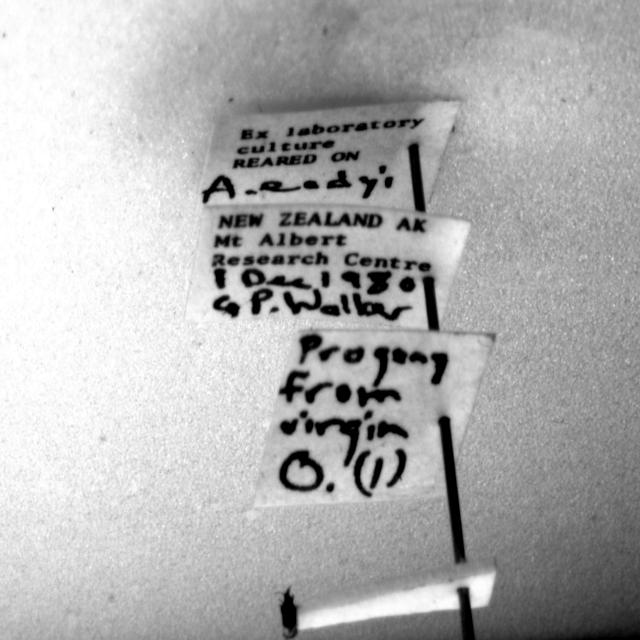 Ex laboratory
culture
REARED ON
A. eadyi
NEW ZEALAND AK
Mt Albert
Research Centre
1 Dec 1980
G P. Walker
Progeny
from
virgin
O. (1)